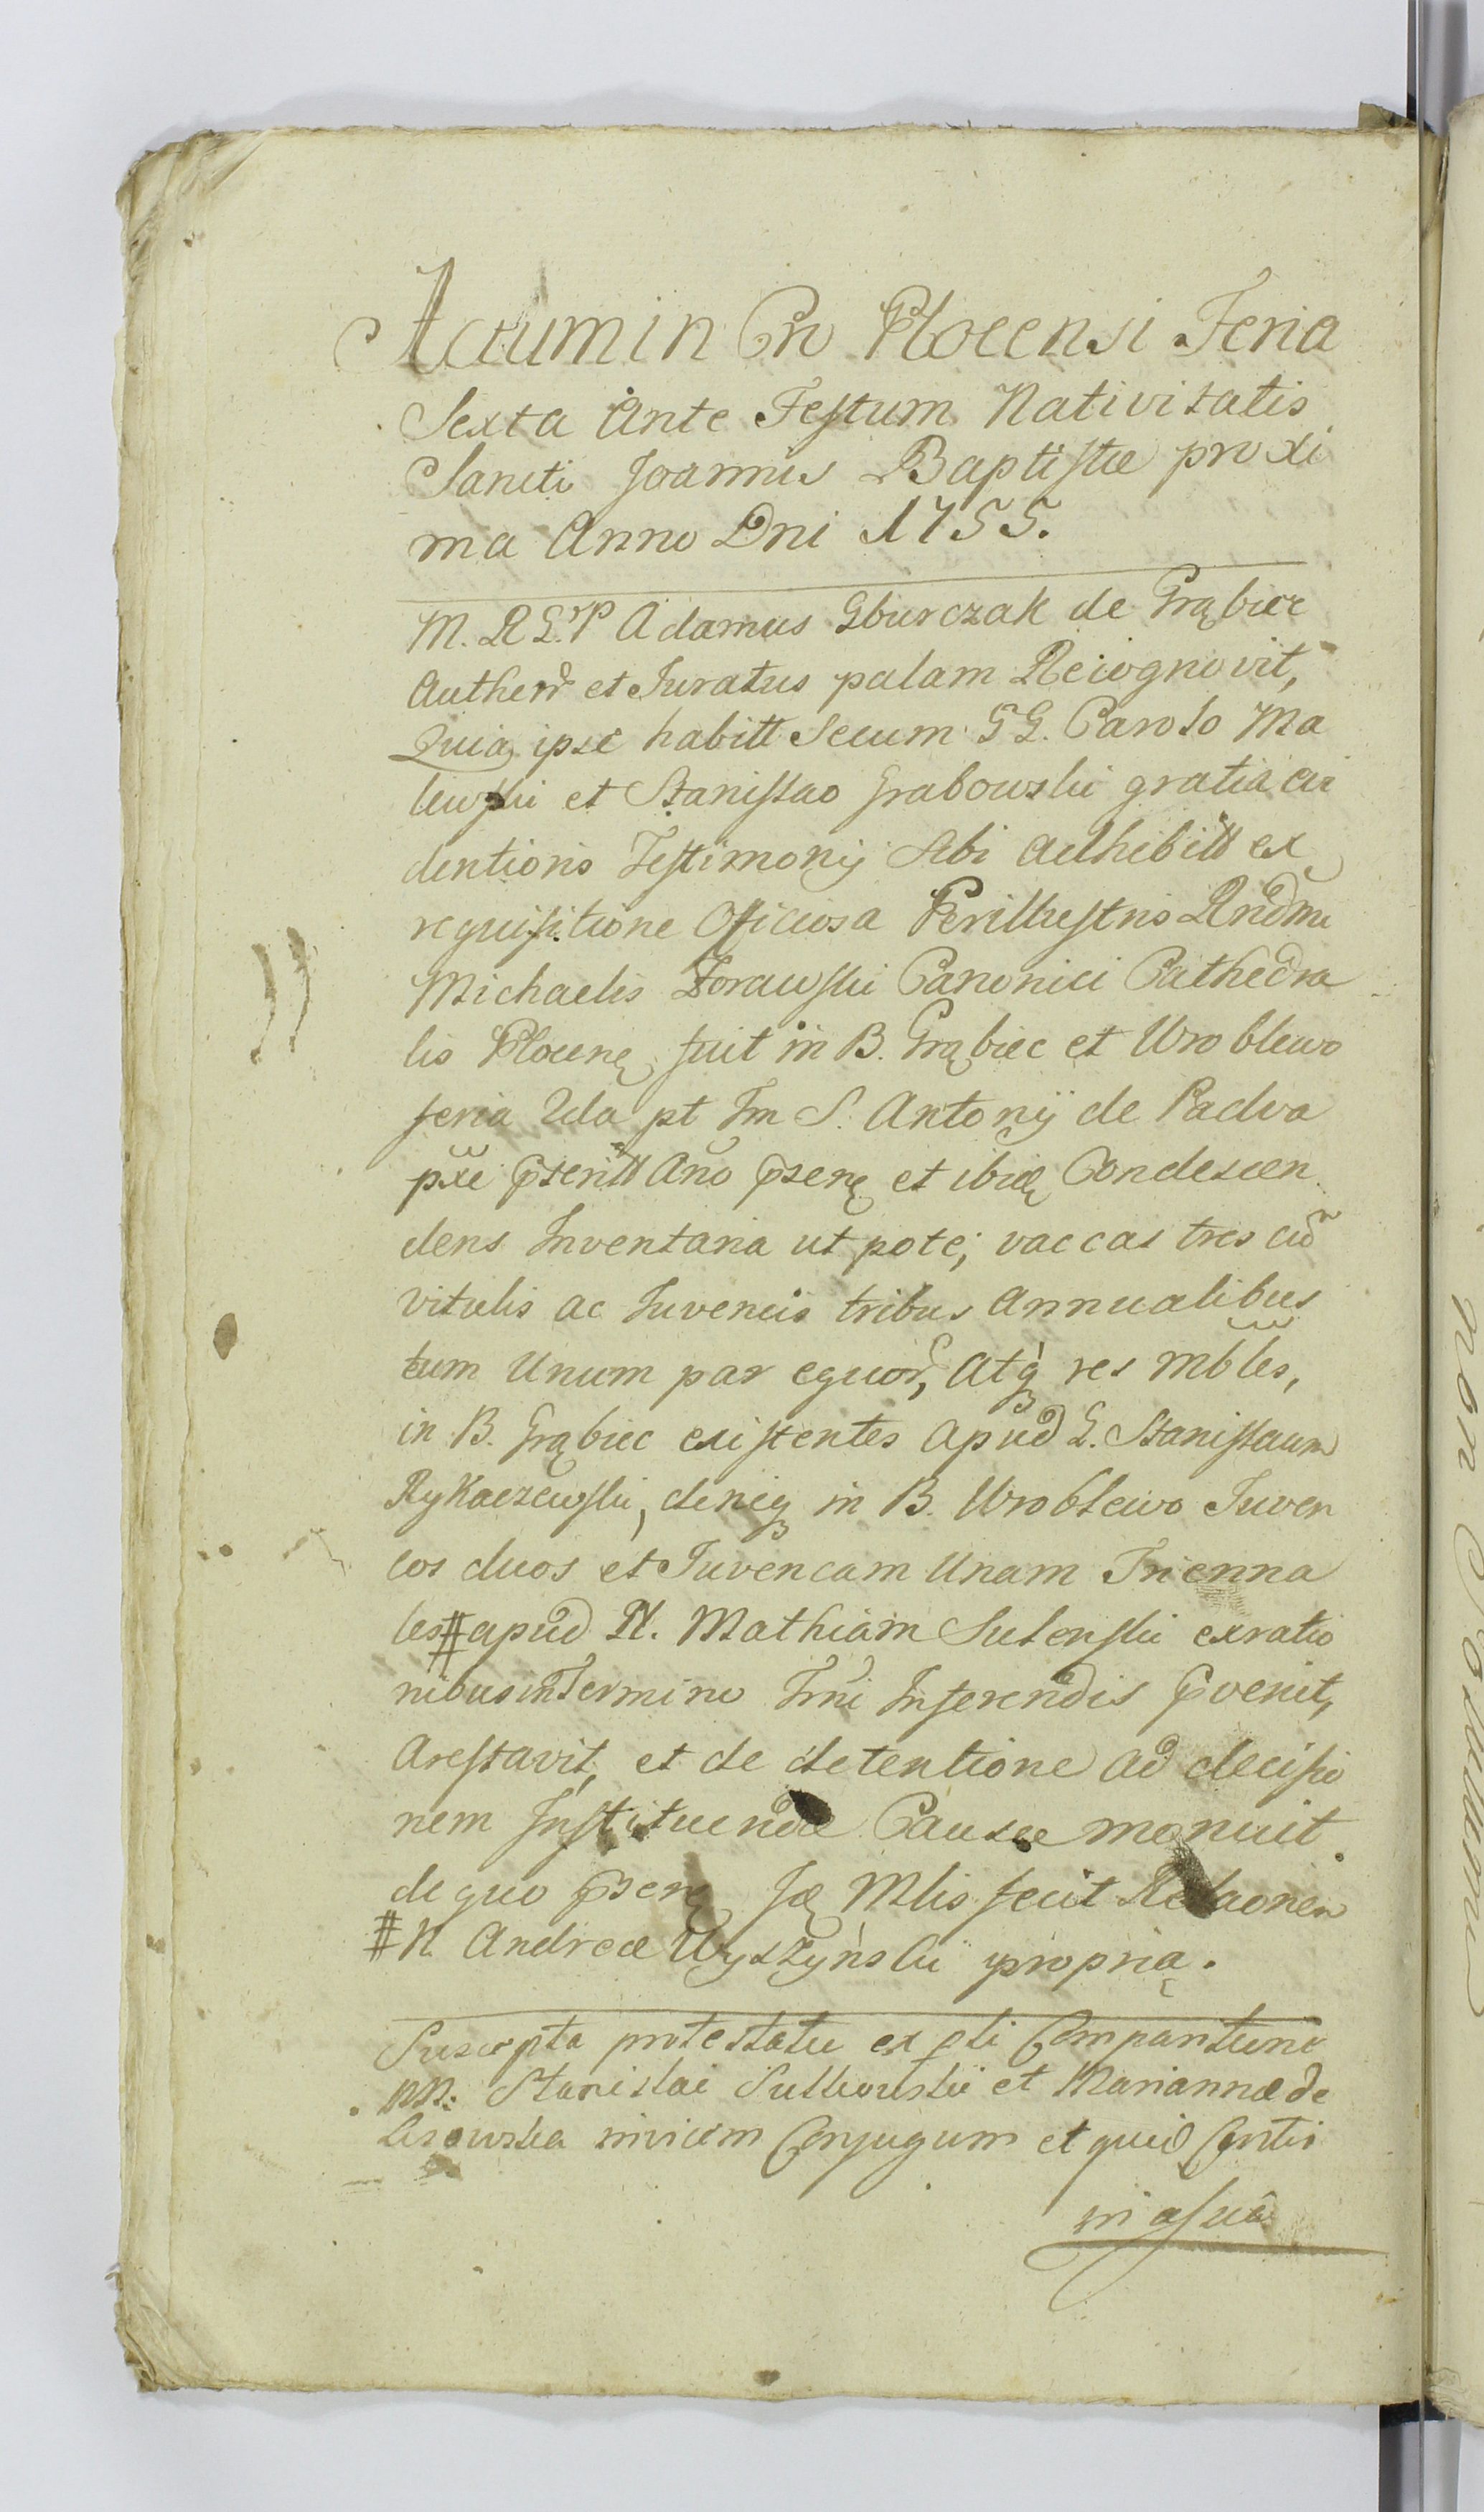 Actum in Cro Plocensi Feria
Sexta Ante Festum Nativitatis
Sancti Joannis Baptistæ proxi
ma Anno Dni 1755.
M. R G. P Adamus Gburczak de Grąbiec
Authen et Juratus palam Recognovit,
Quia ipse habitt Secum GG. Carolo Ma
lewski et Stanislao Grabowski gratia evi
dentioris Testimonij sibi adhibitt ex
requisitione Officiosa Perillustris Rndmi
Michaelis Canonici Cathedra
lis Plocen fuit in B. Grąbiec et Wroblewo
feria 2da pt Fm S. Antonij de Padva
pxe pteritt Ano psen et ibid Condescen
dens Inventaria ut pote; vaccas tres cũ
vitulis ac Juvencis tribus Annualibus
tum Unum par equor, atq res mbles,
in B. Grąbiec existentes apud G. Stanislaum
Rykaczewski, deniq in B. Wroblewo Juven
cos duos et Juvencam Unam Trienna
les # apud N. Mathiam Sulenski exratio
nibus in Termino Tmi Inferendis pvenit,
Arestavit, et de detentione ad decisio
nem Instituendæ Causæ monuit.
de quo psen Mlis fecit Relaonem
# N. Andreæ Wyszyński propria.
Suscepta protestatu ex pti Comparitune
NN: Stanislai Sutkowski et Mariannæ de
invicem Conjugum et quid Contin